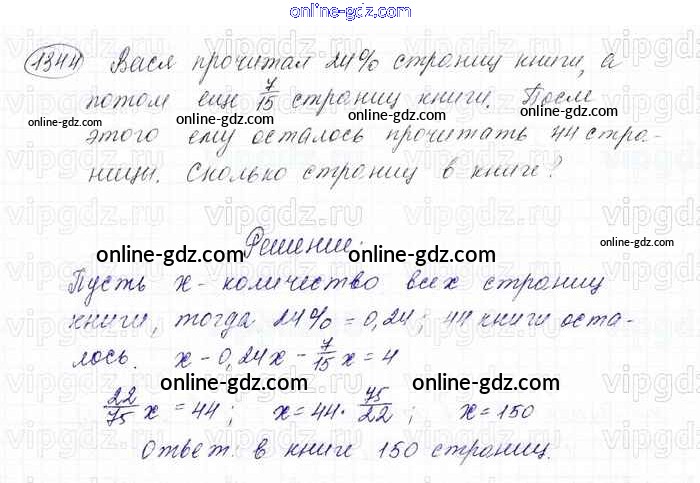 online-gdz.com
1344 Вася прочитал 24% страниц книги, а
потом еще 7/15 страниц книги. После
online-gdz.com online-gdz.com online-gdz.com
этого ему осталось прочитать 44 стра-
ницы. Сколько страниц в книге?
Решение:
online-gdz.com online-gdz.com online-gdz.com
Пусть x - количество всех страниц
книги, тогда 24% = 0,24; 44 книги оста-
лось. x - 0,24x - 7/15 x = 4
online-gdz.com online-gdz.com online-gdz.com
22/75 x = 44; x = 44 · 75/22; x = 150
Ответ. в книге 150 страниц.
online-gdz.com